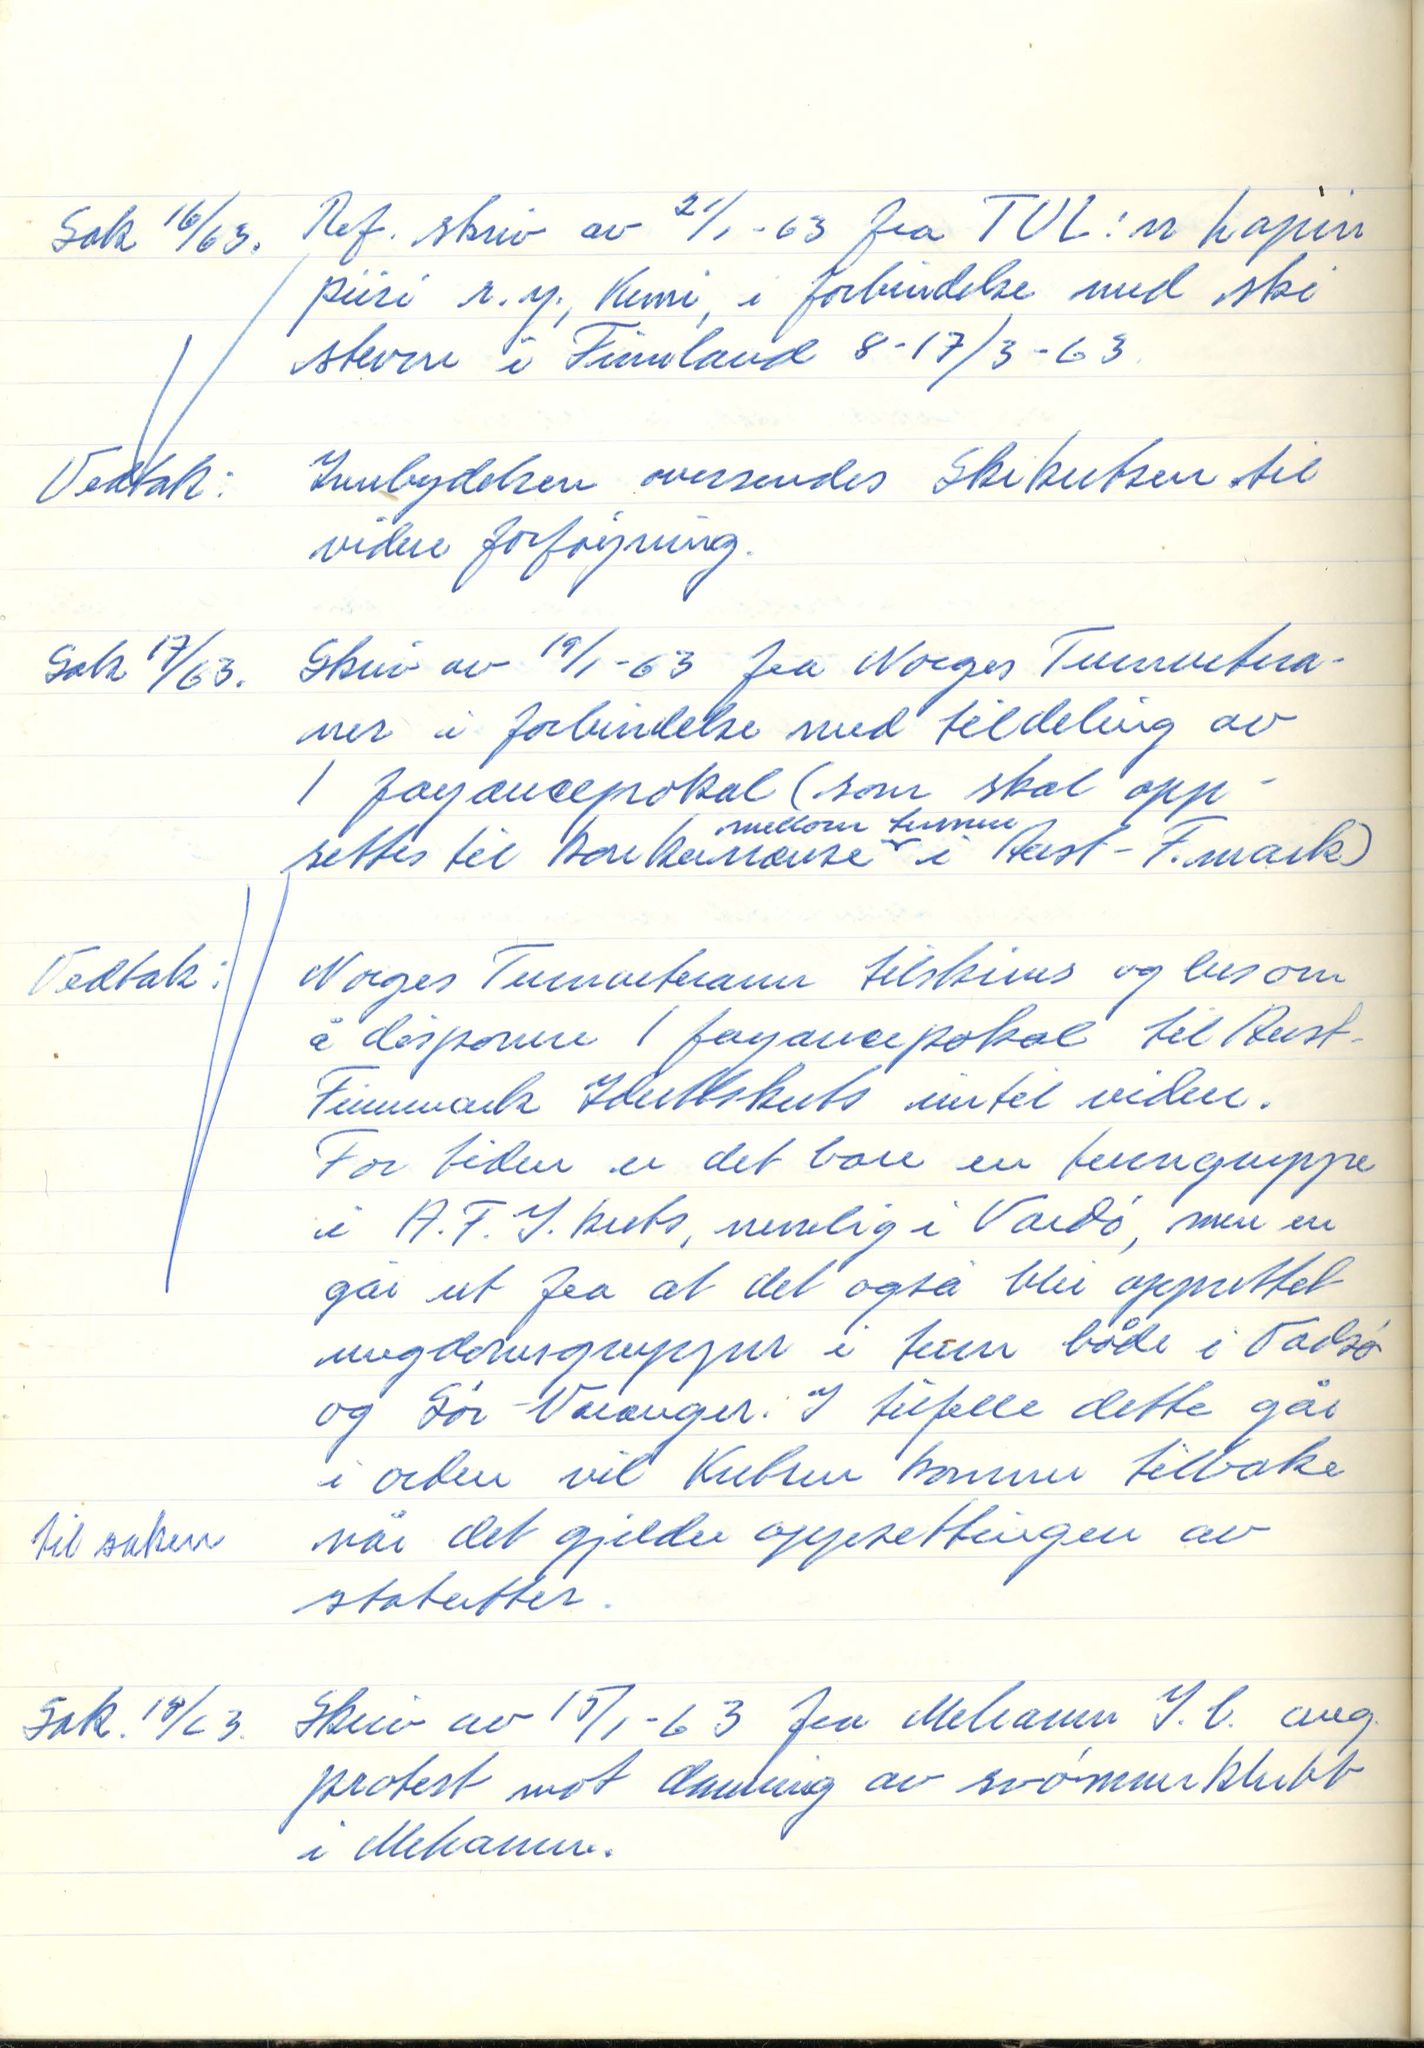 Sak 16/63. Ref. skriv av 21/1-63 fra TUL:n Lapin
piiri r.y., Kemi, i forbindelse med ski
stevne i Finnland 8-17/3-63.
Vedtak: Innbydelsen oversendes Skikretsen til
videre forföyning.
Sak 17/63. Skriv av 19/1-63 fra Norges Turnvetera-
ner i forbindelse med tildeling av
1 fayancepokal (som skal opp-
mellom turnere
settes til konkurranse i Aust-F.mark)
Vedtak: Norges Turnveteraner tilskrives og bes om
å disponere 1 fayancepokal til Aust-
Finnmark Idrettskrets inntil videre.
For tiden er det bare en turngruppe
i A.F.I.krets, nemlig i Vardö, men en
går ut fra at det også blir opprettet
ungdomsgrupper i turn både i Vadsö
og Sör-Varanger. I tilfelle dette går
i orden vil Kretsen komme tilbake
til saken når det gjelder oppsettingen av
statutter.
Sak. 18/63. Skriv av 15/1-63 fra Mehamn I.l. ang.
protest mot danning av svömmeklubb
i Mehamn.